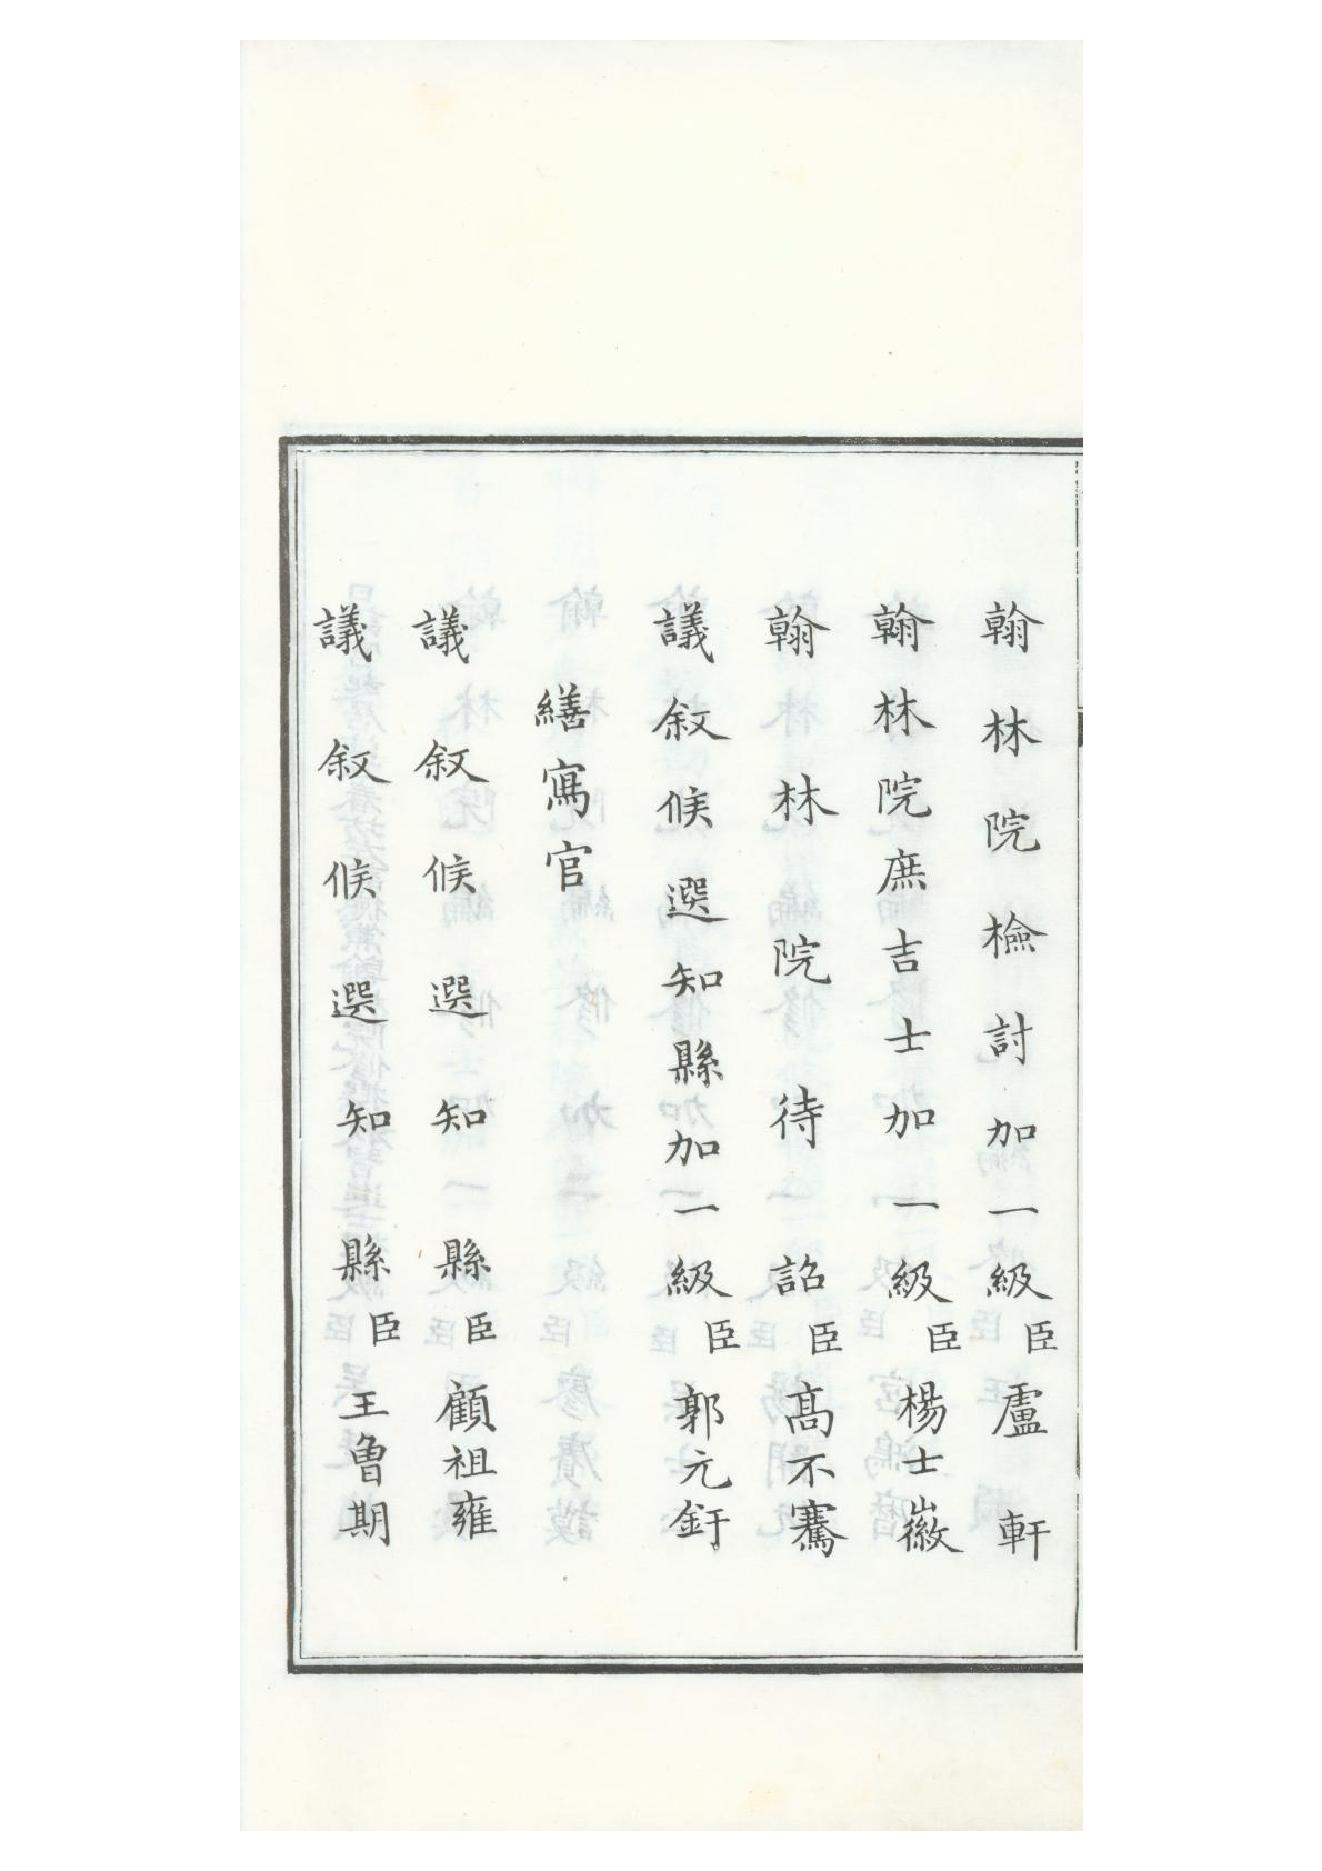 翰林院檢討加一級臣盧軒
翰林院庶吉士加一級臣楊士徽
翰林院待詔臣高不騫
議敘候選知縣加一級臣郭元釪
繕寫官
議敘候選知縣臣顧祖雍
議敘候選知縣臣王魯期